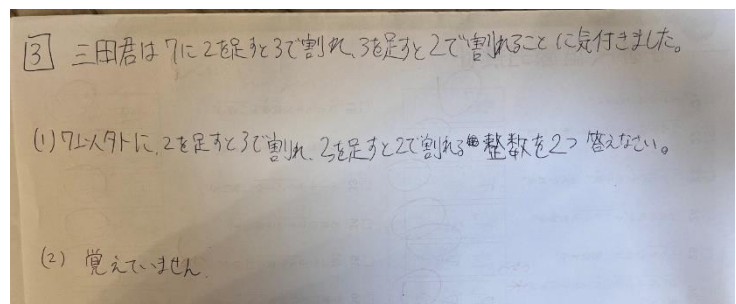 3 三田君は7に2を足すと3で割れ、3を足すと2で割れることに気付きました。
(1) 7以外に、2を足すと3で割れ、3を足すと2で割れる整数を2つ答えなさい。
(2) 覚えていません